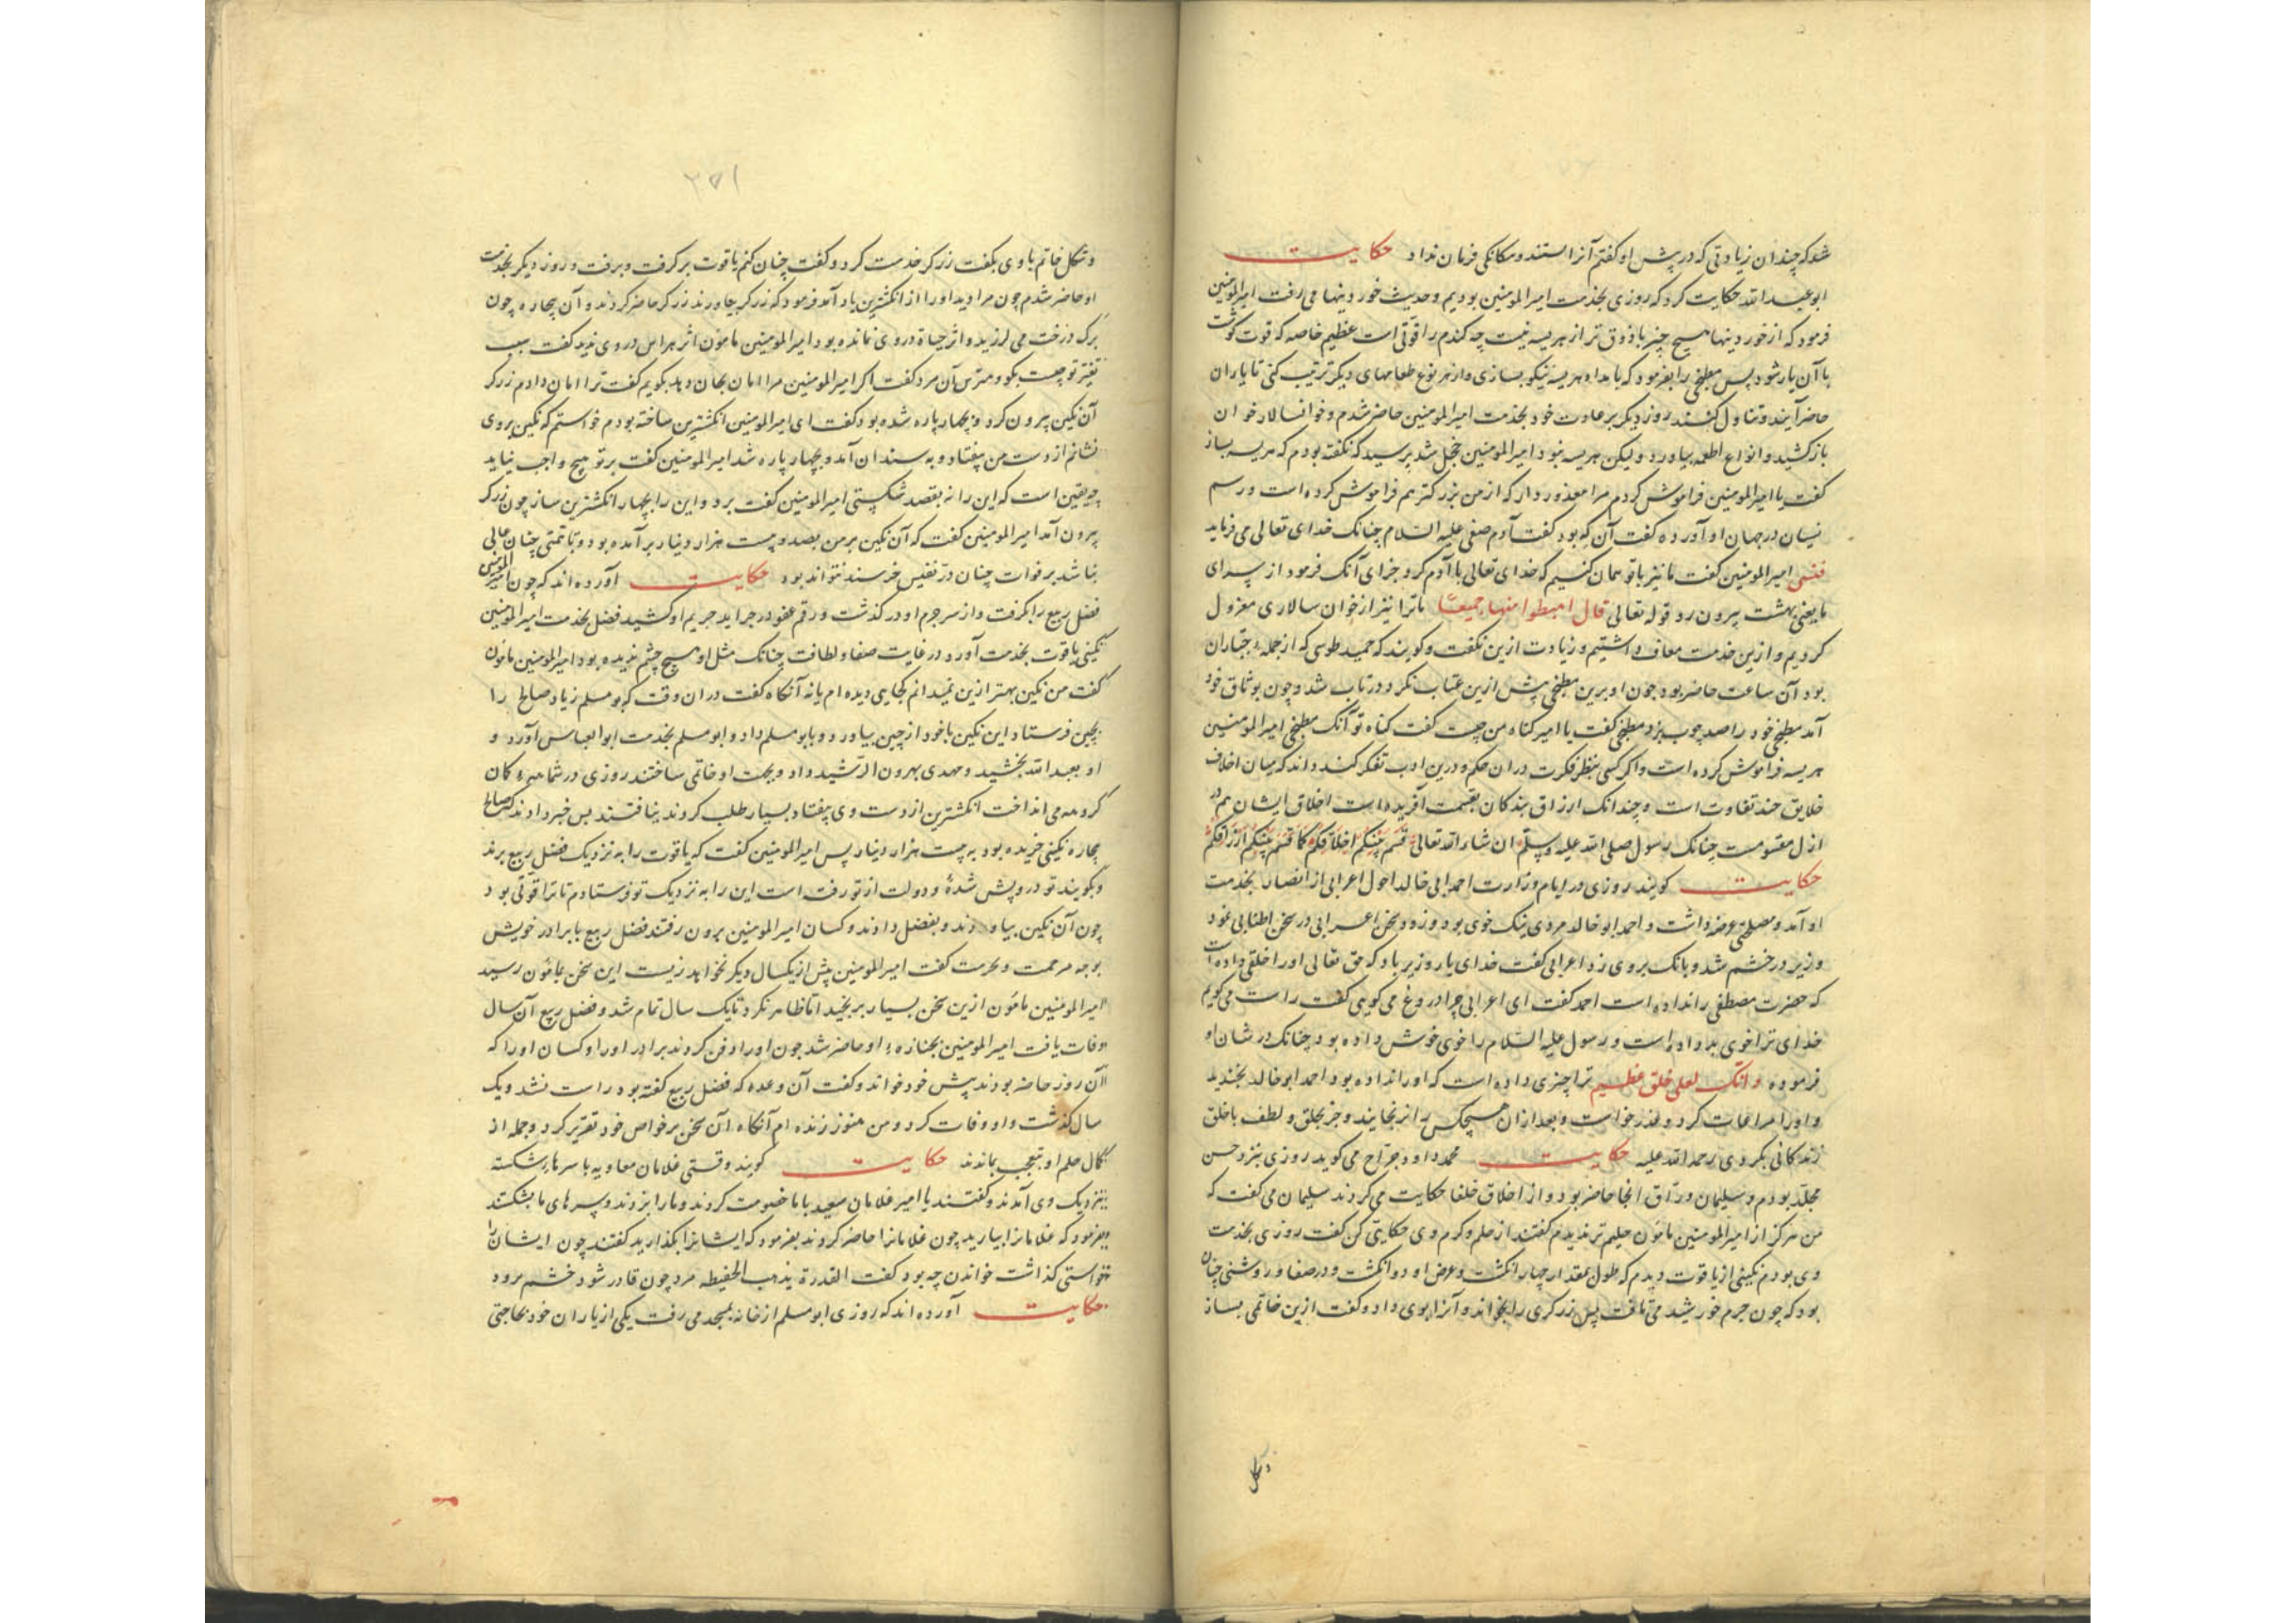 شد که چندان زیادتی که در پیش او کفتم آنرا استند و مکانکی فرمان نداد حکایت
ابو عبد الله حکایت کرد که روزی بخدمت امیر المومنین بودیم و حدیث خوردنیها می رفت امیر المومنین
فرمود که از خوردنیها هیچ چیز با ذوق تر از هریسه نیست چه کندم را قوتی است عظیم خاصه که قوت کوشت
با آن یار شود پس مطبخی را بفرمود که بامداد هریسه نیکو بسازی و از هر نوع طعامهای دیکر ترتیب کنی تا یاران
حاضر آیند و تناول کنند روز دیکر بر عادت خود بخدمت امیر المومنین حاضر شدم و خوانسالار خوان
باز کشید و انواع اطعمه بیاورد ولیکن هریسه نبود امیر المومنین خجل شد پرسید که نکفته بودم که هریسه بساز
کفت یا امیر المومنین فراموش کردم مرا معذور دار که از من بزرکتر هم فراموش کرده است و رسم
نسیان در جهان او آورده کفت آن که بود کفت آدم صفی علیه السلام چنانک خدای تعالی می فرماید
فنسی امیر المومنین کفت ما نیز با تو همان کنیم که خدای تعالی با آدم کرد جزای آنک فرمود از سرای
ما یعنی بهشت بیرون رو قوله تعالی قال اهبطوا منها جمیعا ما ترا نیز از خوان سالاری معزول
کردیم و ازین خدمت معاف داشتیم و زیادت ازین نکفت و کویند که حمید طوسی که از جمله جباران
بود آن ساعت حاضر بود چون او برین مطبخی پیش ازین عتاب نکرد در تاب شد و چون بوثاق خود
آمد مطبخی خود را صد چوب بزد مطبخی کفت یا امیر کناه من چیست کفت کناه تو آنک مطبخی امیر المومنین
هریسه فراموش کرده است و اکر کسی بنظر فکرت در ان حکم و درین ادب تفکر کند داند که میان اخلاق
خلایق چند تفاوت است و چندانک ارزاق بندکان بقسمت آفریده است اخلاق ایشان هم در
ازل مقسومست چنانک رسول صلی الله علیه و سلم ان شاء الله تعالی قسم بینکم اخلاقکم کما قسم بینکم ارزاقکم
حکایت کویند روزی در ایام وزارت احمد ابی خالد احول اعرابی از انصار بخدمت
او آمد و مصلحتی عرضه داشت و احمد ابو خالد مردی نیک خوی بود و زود سخن اعرابی در سخن اطنابی نمود
وزیر در خشم شد و بانک بر وی زد اعرابی کفت خدای یار وزیر باد که حق تعالی او را خلقی داده است
که حضرت مصطفی را نداده است احمد کفت ای اعرابی چرا دروغ می کویی کفت راست می کویم
خدای ترا خوی بد داده است و رسول علیه السلام را خوی خوش داده بود چنانک در شان او
فرموده وانک لعلی خلق عظیم ترا چیزی داده است که او را نداده بود احمد ابو خالد بخندید
و او را مراعات کرد و عذر خواست و بعد از ان هیچکس را نرنجانید و جز بخلق و لطف با خلق
زندکانی نکردی رحمه الله علیه حکایت محمد داود جراح می کوید روزی بنزد حسن
مخلد بودم و سلیمان وراق انجا حاضر بود و از اخلاق خلفا حکایت می کردند سلیمان می کفت که
من هرکز از امیر المومنین مامون حلیم تر ندیدم کفتند از حلم و کرم وی حکایتی کن کفت روزی بخدمت
وی بودم نکینی از یاقوت دیدم که طول بمقدار چهار انکشت و عرض او دو انکشت و در صفا و روشنی چنان
بود که چون جرم خورشید می تافت پس زرکری را بخواند و آنرا بوی داد و کفت ازین خاتمی بساز
و شکل
۲۵۱
و شکل خاتم با وی بکفت زرکر خدمت کرد و کفت چنان کنم یاقوت بر کرفت و برفت و روز دیکر بخدمت
او حاضر شدم چون مرا دید او را از انکشترین یاد آمد فرمود که زرکر بیاورند زرکر حاضر کردند و آن بیچاره چون
برک درخت می لرزید و اثر حیاة در وی نمانده بود امیر المومنین مامون اثر هراس در وی بدید کفت سبب
تغیر تو چیست بکو و مترس آن مرد کفت اکر امیر المومنین مرا امان بجان دهد بکویم کفت ترا امان دادم زرکر
آن نکین بیرون کرد و بچهار پاره شده بود کفت ای امیر المومنین انکشترین ساخته بودم خواستم که نکین بروی
نشانم از دست من بیفتاد و به سندان آمد و بچهار پاره شد امیر المومنین کفت بر تو هیچ واجب نیاید
چه یقین است که این را نه بقصد شکستی امیر المومنین کفت برو و این را بچهار انکشترین ساز چون زرکر
بیرون آمد امیر المومنین کفت که آن نکین بر من بصد و بیست هزار دینار بر آمده بود و تا همتی چنان عالی
نباشد بر فوات چنان در نفیس خرسند نتواند بود حکایت آورده اند که چون امیر المومنین
فضل ربیع را بکرفت و از سر جرم او در کذشت و رقم عفو در جراید جریم او کشید فضل بخدمت امیر المومنین
نکینی یاقوت بخدمت آورد در غایت صفا و لطافت چنانک مثل او هیچ چشم ندیده بود امیر المومنین مامون
کفت من نکین بهتر ازین نمیدانم کجایی دیده ام یا نه آنکاه کفت در ان وقت که بو مسلم زیاد صالح را
بچین فرستاد این نکین با خود از چین بیاورد و بابو مسلم داد و ابو مسلم بخدمت ابو العباس آورد و
او بعبد الله بخشید و مهدی بهرون الرشید داد و بجهت او خاتمی ساختند روزی در شماسیه کان
کروهه می انداخت انکشترین از دست وی بیفتاد بسیار طلب کردند نیافتند بس خبر دادند که صالح
بیچاره نکینی خریده بود به بیست هزار دینار پس امیر المومنین کفت که یاقوت را به نزدیک فضل ربیع برند
و بکویند تو درویش شده و دولت از تو رفت است این را به نزدیک تو فرستادم تا ترا قوتی بود
چون آن نکین بیاوردند و بفضل دادند و کسان امیر المومنین برون رفتند فضل ربیع با برادر خویش
بوجه مرحمت و بحرمت کفت امیر المومنین بیش از یکسال دیکر نخواهد زیست این سخن بمامون رسید
امیر المومنین مامون ازین سخن بسیار برنجید اما ظاهر نکرد تا یک سال تمام شد و فضل ربیع آن سال
وفات یافت امیر المومنین بجنازه او حاضر شد چون او را دفن کردند برادر او را و کسان او را که
آن روز حاضر بودند پیش خود خواند و کفت آن وعده که فضل ربیع کفته بود راست نشد و یک
سال کذشت و او وفات کرد و من هنوز زنده ام آنکاه آن سخن بر خواص خود تقریر کرد و جمله از
کمال حلم او بتعجب بماندند حکایت کویند وقتی غلامان معاویه با سرهاء شکسته
بنزدیک وی آمدند و کفتند یا امیر غلامان سعید با ما خصومت کردند و ما را بزدند و سرهای ما بشکستند
بفرمود که غلامانرا بیارید چون غلامانرا حاضر کردند بفرمود که ایشانرا بکذارید کفتند چون ایشان را
بخواستی کذاشت خواندن چه بود کفت القدرة یذهب الحفیظه مرد چون قادر شود خشم برود
حکایت آورده اند که روزی ابو مسلم از خانه بمسجد می رفت یکی از یاران خود بحاجتی